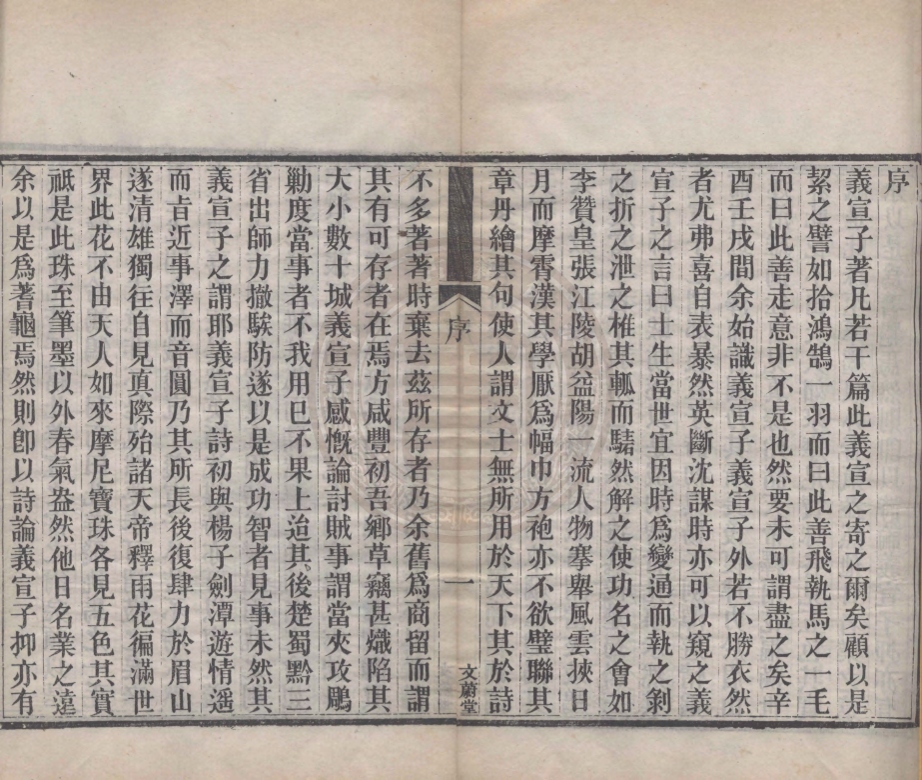 序
義宣子著凡若干篇此義宣之寄之爾矣顧以是
絜之譬如拾鴻鵠一羽而曰此善飛執馬之一毛
而曰此善走意非不是也然要未可謂盡之矣辛
酉壬戌間余始識義宣子義宣子外若不勝衣然
者尤弗喜自表暴然英斷沈謀時亦可以窺之義
宣子之言曰士生當世宜因時爲變通而執之剝
之折之泄之椎其軱而騞然解之使功名之會如
李贊皇張江陵胡益陽一流人物搴舉風雲挾日
月而摩霄漢其學厭爲幅巾方袍亦不欲璧聯其
章丹繪其句使人謂文士無所用於天下其於詩
序
一
文蔚堂
不多著著時棄去茲所存者乃余舊爲商留而謂
其有可存者在焉方咸豐初吾鄉草竊甚熾陷其
大小數十城義宣子感慨論討賊事謂當夾攻鵰
勦度當事者不我用巳不果上迨其後楚蜀黔三
省出師力撤騃防遂以是成功智者見事未然其
義宣子之謂耶義宣子詩初與楊子劍潭遊情遥
而旨近事澤而音圓乃其所長後復肆力於眉山
遂清雄獨往自見真際殆諸天帝釋雨花徧滿世
界此花不由天人如來摩尼寶珠各見五色其實
祗是此珠至筆墨以外春氣盎然他日名業之遠
余以是爲蓍龜焉然則卽以詩論義宣子抑亦有